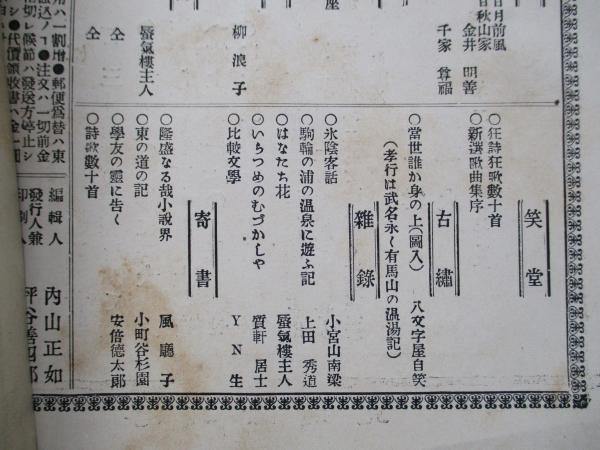 日月前風
日秋山家
金井明善
千家尊福
座
柳浪子
蜃氣樓主人
仝二
仝
笑堂
○狂詩狂歌數十首
○新選歌曲集序
古繡
○當世誰か身の上(圖入) 八文字屋自笑
(孝行は武名永く有馬山の温湯記)
雜錄
○氷陰客話 小宮山南梁
○駒輪の浦の温泉に遊ふ記 上田秀道
○はなたち花 蜃氣樓主人
○いらつめのむづかしや 質軒居士
○比較文學 YN生
寄書
○隆盛なる哉小說界 風廳子
○東の道の記 小町谷杉園
○學友の靈に告く 安倍德太郎
○詩歌數十首
用ハ一割增●郵便爲替ハ東
振込ノヿ●注文ハ一切前金
切レ候節ハ發送方停止シ
シ●代價領收書ハ金一圓
編輯人 內山正如
發行人兼
印刷人 坪谷善四郎